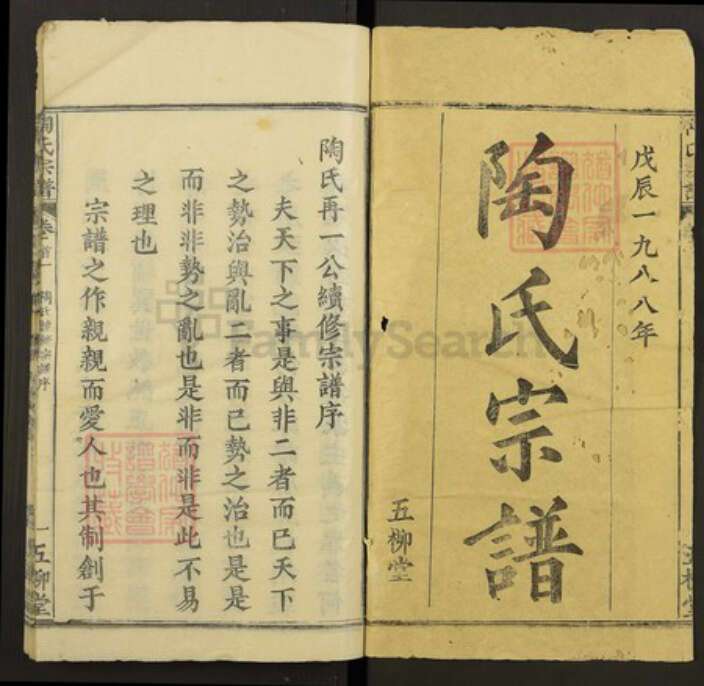 戊辰一九八八年
陶氏宗譜
五柳堂
陶氏再一公續修宗譜序
夫天下之事是與非二者而已天下
之勢治與亂二者而已勢之治也是是
而非非勢之亂也是非而非是此不易
之理也
宗譜之作親親而愛人也其制創于
陶氏宗譜
卷首
一
五柳堂
五柳堂
FamilySearch